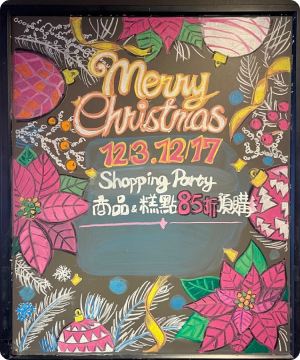 Merry
Christmas
12.3.12.17
Shopping Party
商品&糕點85折預購